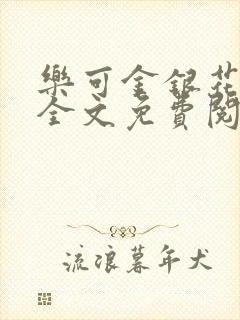 樂可金銀花
全文免費閱
流浪暮年犬